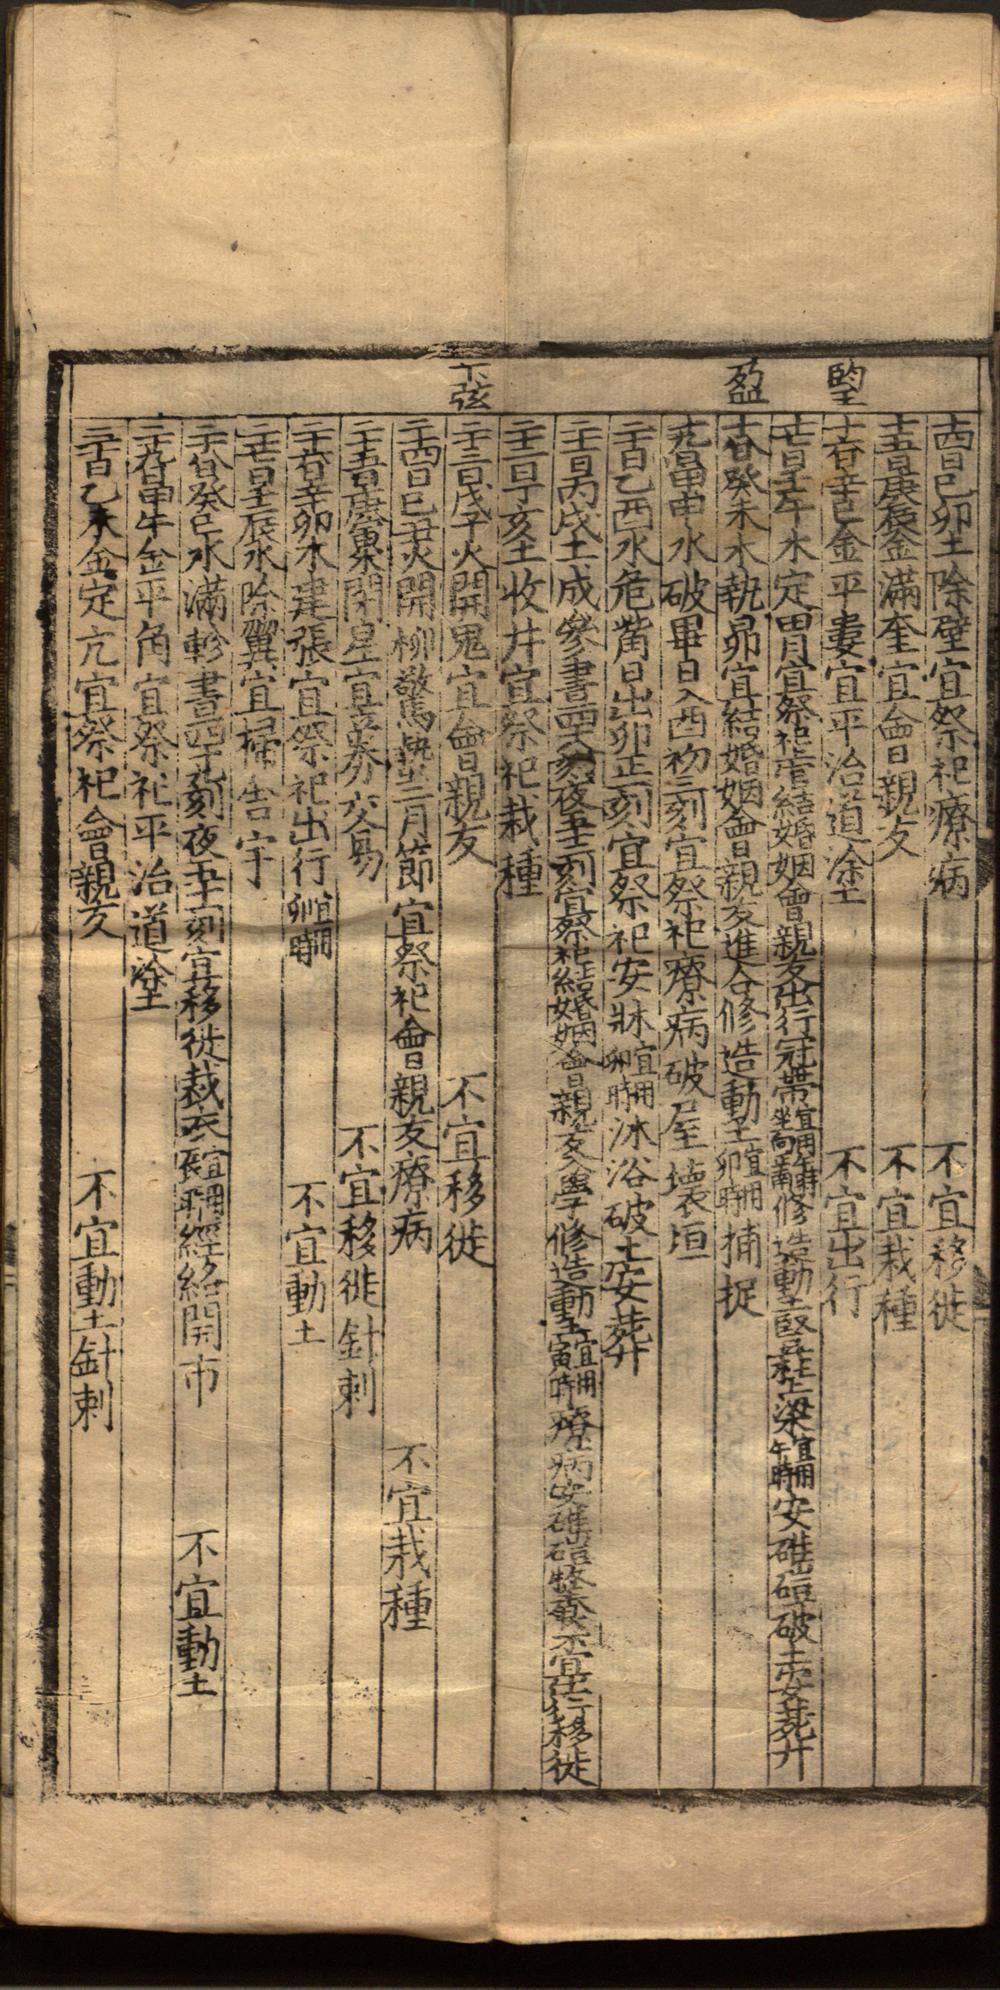 望
盈
下弦
十四日己卯土除壁宜祭祀療病 不宜移徙
十五日庚辰金滿奎宜會親友 不宜栽種
十六日辛巳金平婁宜平治道塗 不宜出行
十七日壬午木定胃宜祭祀結婚姻會親友出行冠帶宜用修造動土竪柱上梁宜用午時安碓磑破土安葬
十八日癸未木執昴宜結婚姻會親友進人修造動土宜用卯時捕捉
十九日甲申水破畢日入酉初三刻宜祭祀療病破屋壞垣
二十日乙酉水危觜日出卯正一刻宜祭祀安牀宜用卯時沐浴破土安葬
二十一日丙戌土成參晝四十八刻夜五十二刻宜祭祀結婚姻會親友入學修造動土宜用寅時療病安碓磑 不宜出行移徙
二十二日丁亥土收井宜祭祀栽種
二十三日戊子火開鬼宜會親友 不宜移徙
二十四日己丑火開柳驚蟄二月節宜祭祀會親友療病 不宜栽種
二十五日庚寅木閉星宜立券交易 不宜移徙針刺
二十六日辛卯木建張宜祭祀出行宜用卯時 不宜動土
二十七日壬辰水除翼宜掃舍宇
二十八日癸巳水滿軫晝四十九刻夜五十一刻宜移徙裁衣宜用辰時經絡開市 不宜動土
二十九日甲午金平角宜祭祀平治道塗
三十日乙未金定亢宜祭祀會親友 不宜動土針刺